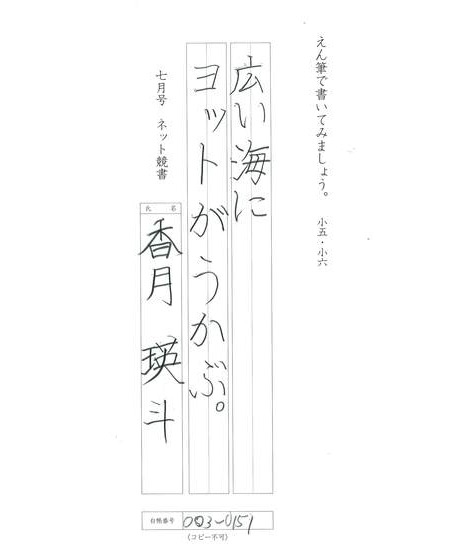 えん筆で書いてみましょう。 小五・小六
広い海に
ヨットがうかぶ。
七月号 ネット競書
氏名
香月 瑛斗
台帳番号 003-0151
(コピー不可)